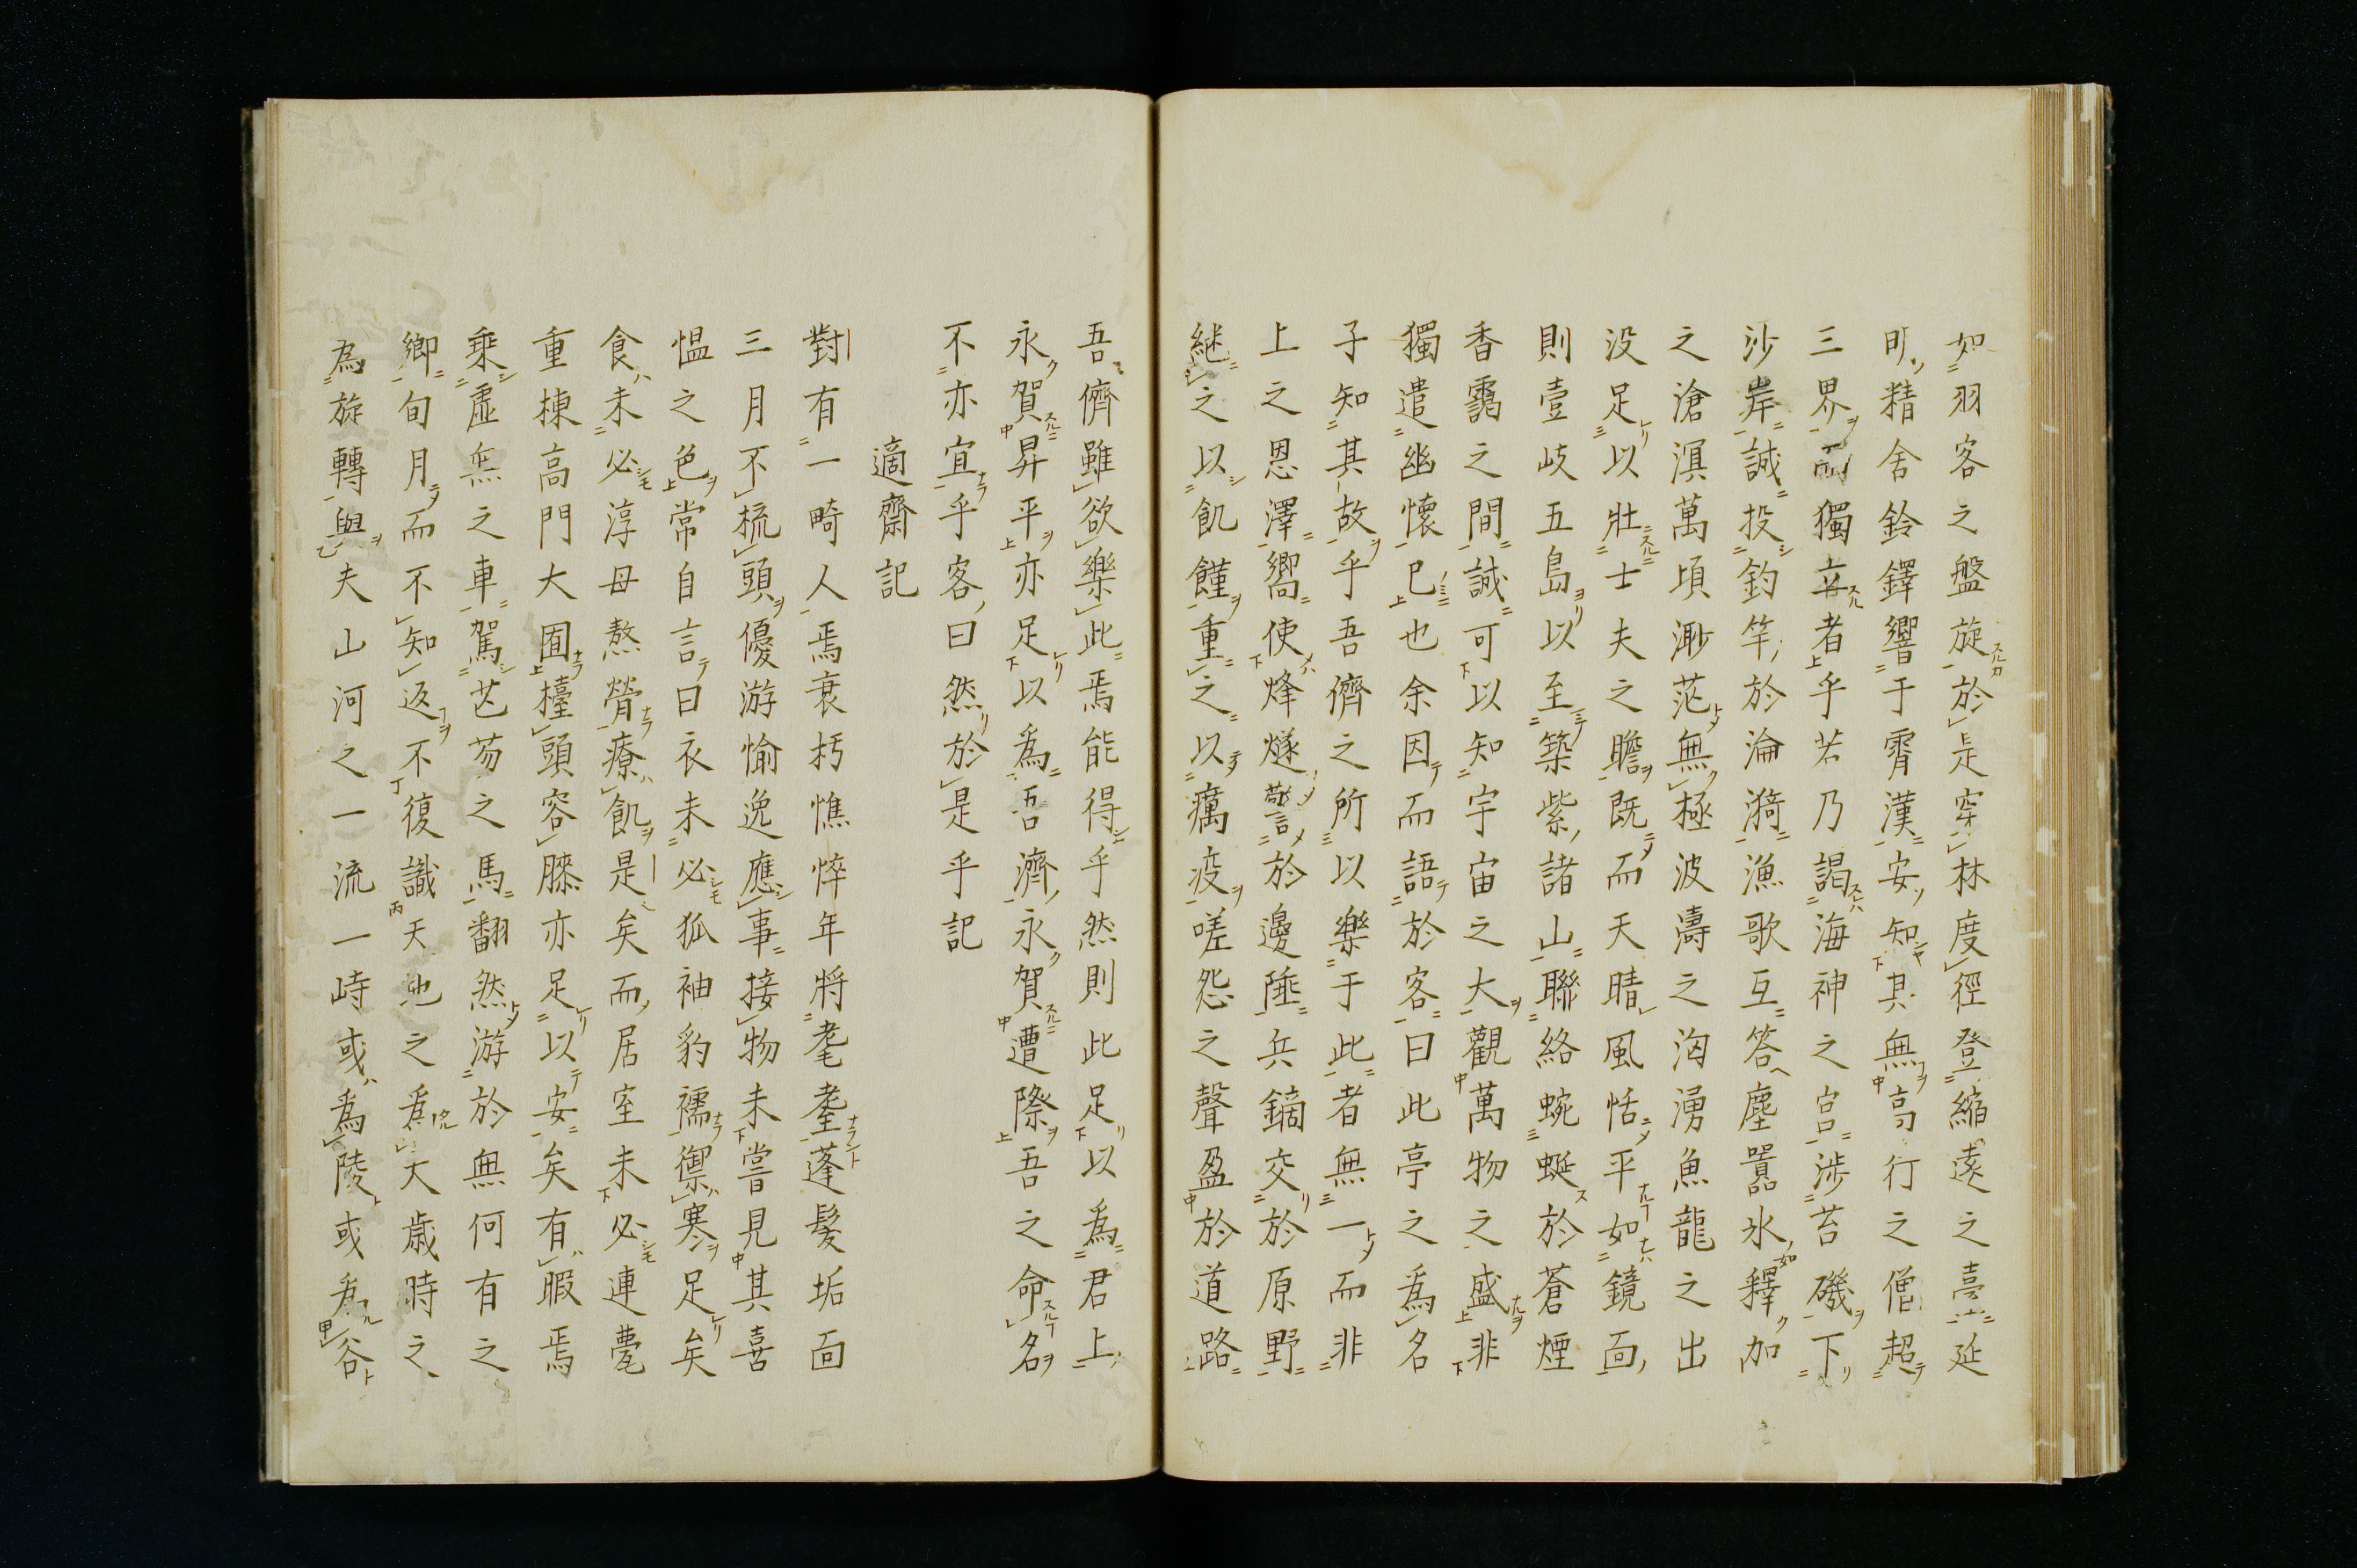 如羽客之盤旋於是穿林度徑登縮遠之臺延
明精舍鈴鐸響于霄漢安知其無高行之僧超
三界而獨立者乎若乃謁海神之宮渉苔磯下
沙岸誠投釣竿於淪漪漁歌互答塵囂氷釋加
之滄溟萬頃渺茫無極波濤之洶湧魚龍之出
没足以壯士夫之瞻既而天晴風恬平如鏡面
則壹岐五島以至築紫諸山聯絡蜿蜒於蒼煙
香靄之間誠可以知宇宙之大觀萬物之盛非
獨遣幽懐已也余因而語於客曰此亭之為名
子知其故乎吾儕之所以樂于此者無一而非
上之恩澤嚮使烽燧警於邊陲兵鏑交於原野
継之以飢饉重之以癘疫嗟怨之聲盈於道路
吾儕雖欲樂此焉能得乎然則此足以為君上
永賀昇平亦足以為吾濟永賀遭際吾之命名
不亦宜乎客曰然於是乎記
適齋記
對有一畸人焉衰朽憔悴年將耄耋蓬髪垢面
三月不梳頭優游愉逸應事接物未嘗見其喜
愠之色常自言曰衣未必狐袖豹襦禦寒足矣
食未必淳母熬膋療飢是矣而居室未必連甍
重棟高門大囿檯頭容膝亦足以安矣有暇焉
乗虚無之車駕芒芴之馬翻然游於無何有之
郷旬月而不知返不復識天地之為大歳時之
為旋轉與夫山河之一流一峙或為陵或為谷